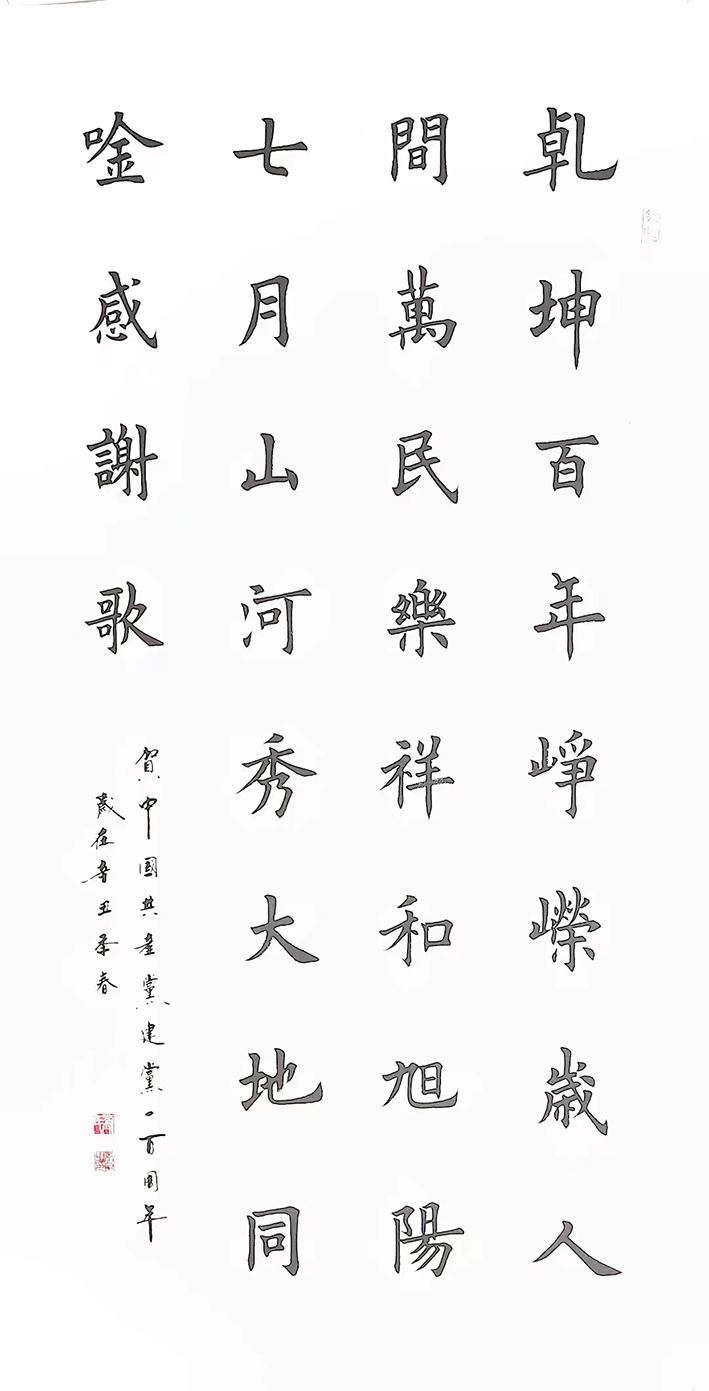 乹坤百年崢嶸歳人
間萬民樂祥和旭陽
七月山河秀大地同
唫感謝歌
賀中國共產黨建黨一百周年
歲在辛丑季春